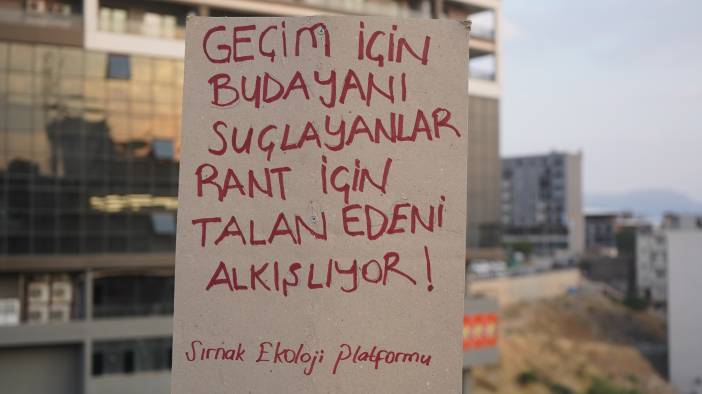 GEÇİM İÇİN
BUDAYANI
SUÇLAYANLAR
RANT İÇİN
TALAN EDENİ
ALKIŞLIYOR!
Şırnak Ekoloji Platformu